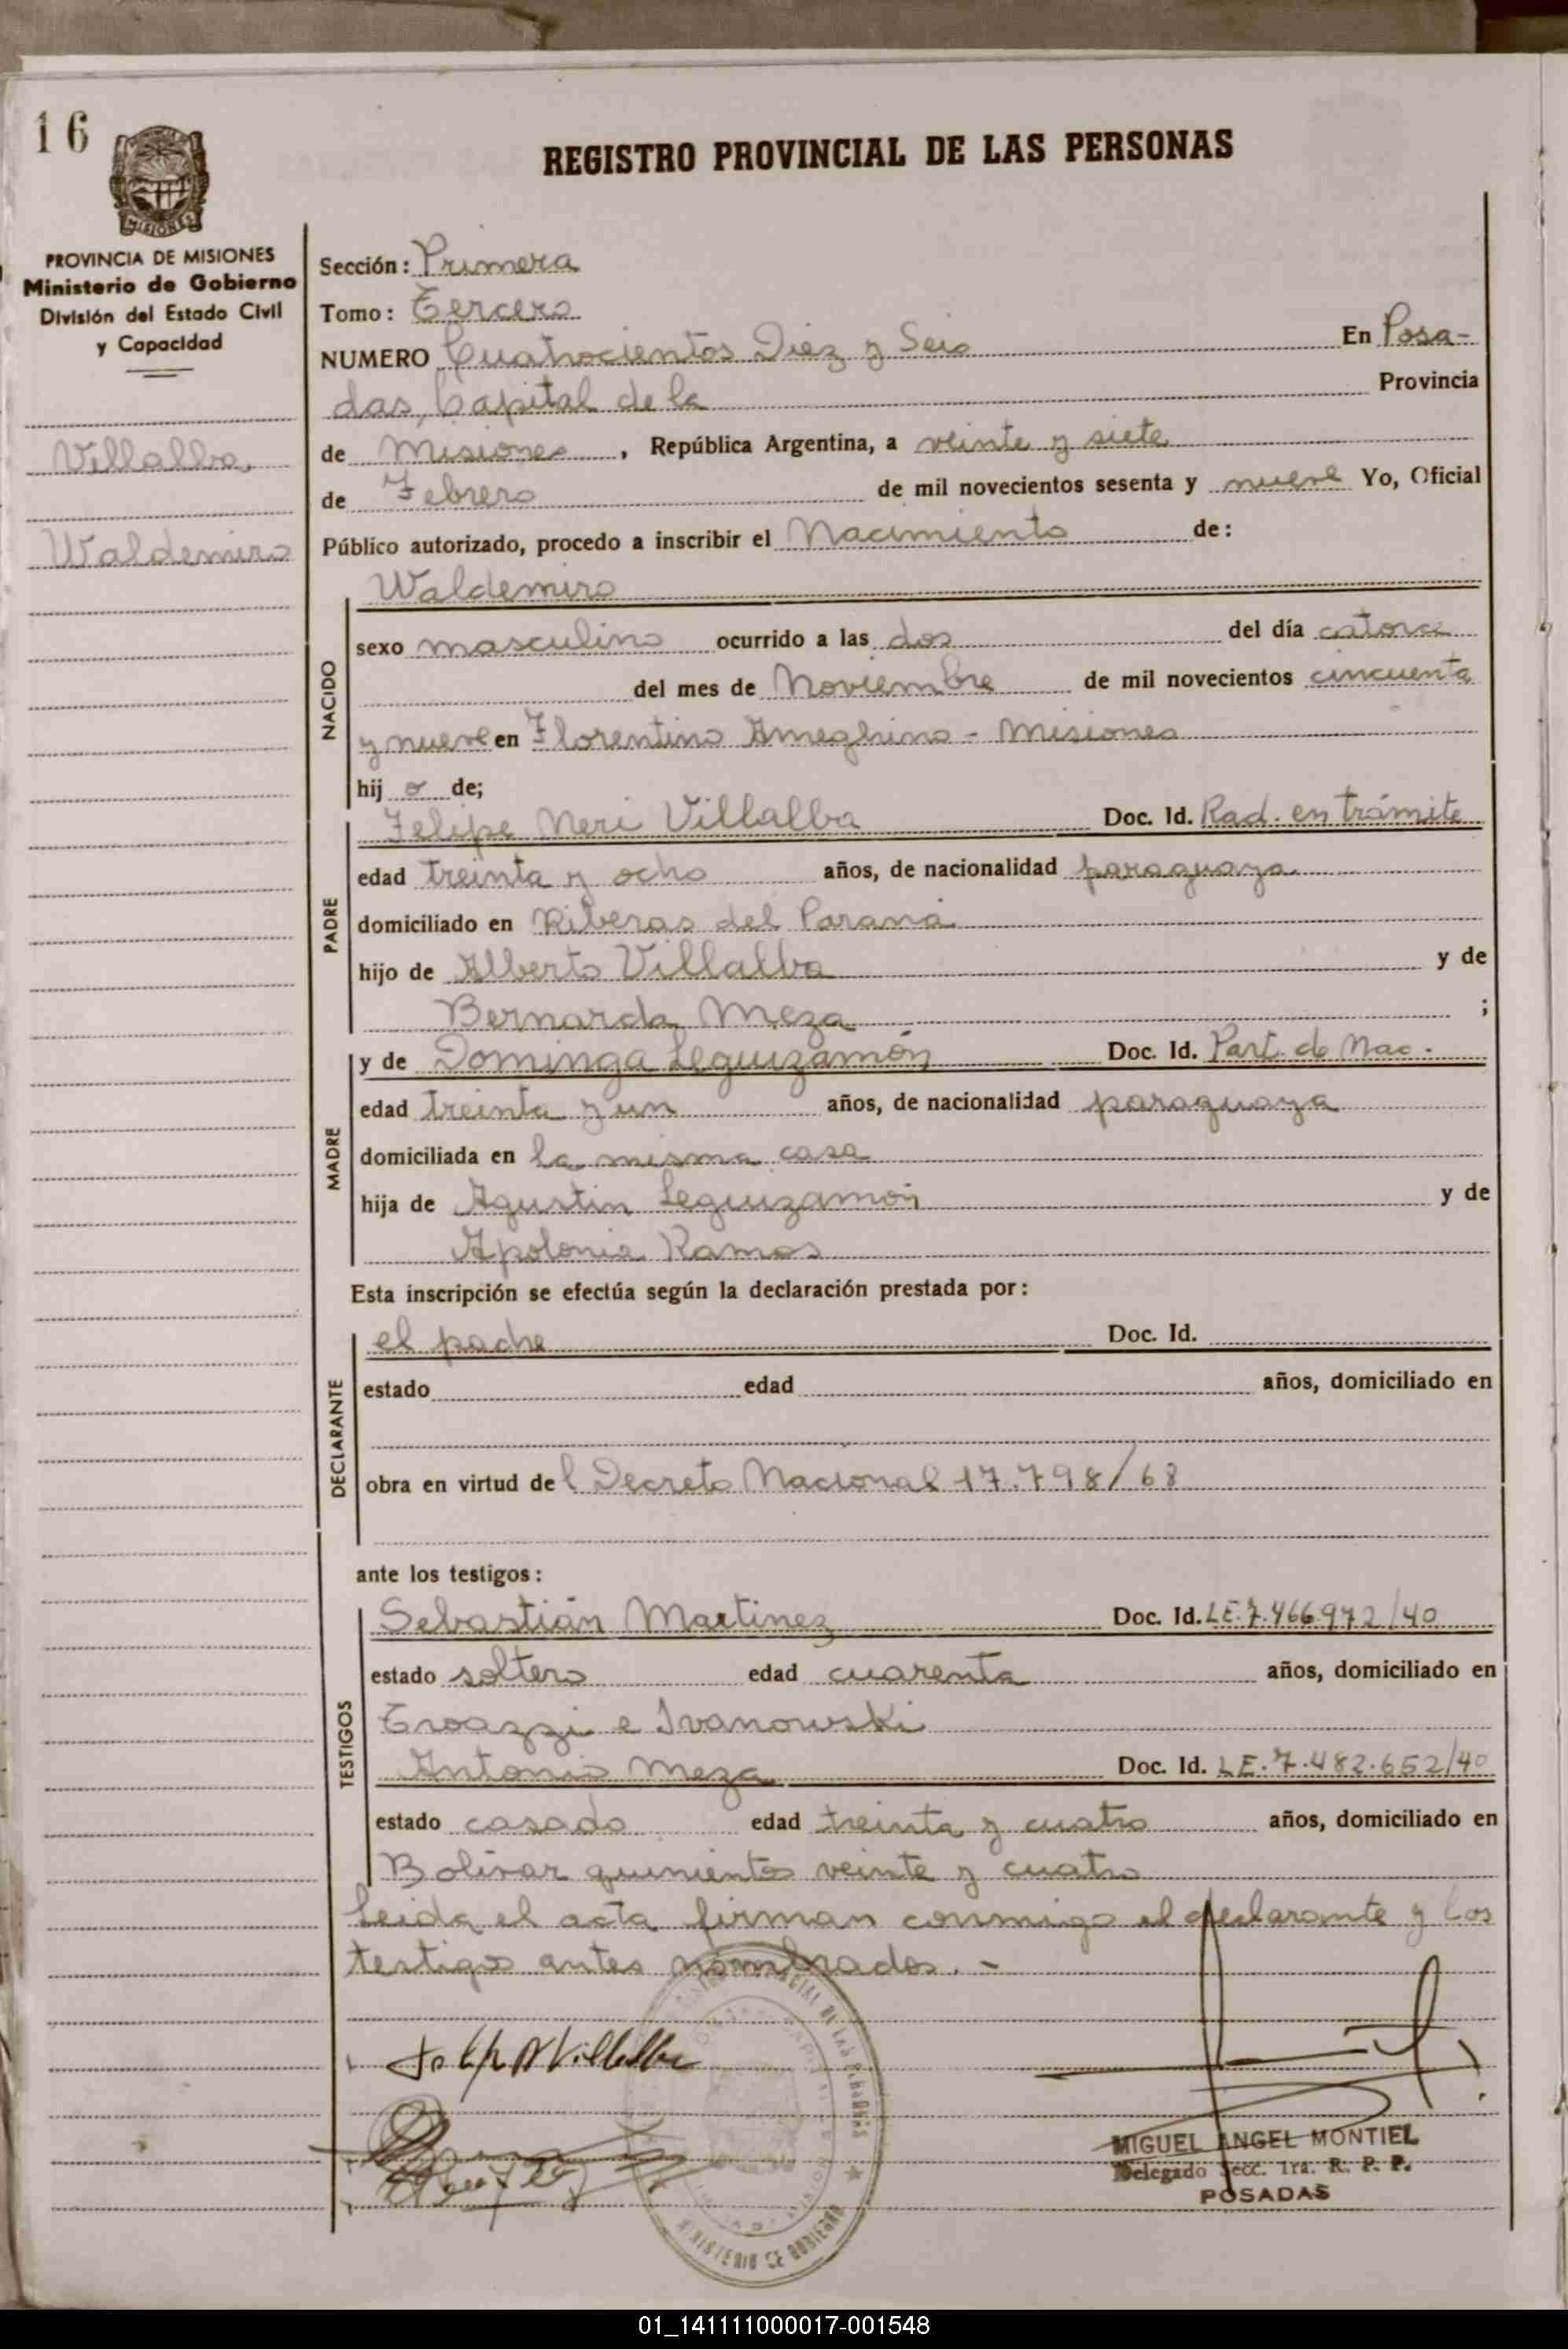 16
REGISTRO PROVINCIAL DE LAS PERSONAS
MISIONES
PROVINCIA DE MISIONES
Ministerio de Gobierno
División del Estado Civil
y Capacidad
Villalba,
Waldemiro
Sección: Primera
Tomo: Tercero
NUMERO Cuatrocientos Diez y Seis En Posa-
das, Capital de la Provincia
de Misiones, República Argentina, a veinte y siete
de Febrero de mil novecientos sesenta y nueve Yo, Oficial
Público autorizado, procedo a inscribir el Nacimiento de:
Waldemiro
NACIDO
sexo masculino ocurrido a las dos del día catorce
del mes de Noviembre de mil novecientos cincuenta
y nueve en Florentino Ameghino - Misiones
hij o de;
PADRE
Felipe Neri Villalba Doc. Id. Rad. en trámite
edad treinta y ocho años, de nacionalidad paraguaya
domiciliado en Riberas del Paraná
hijo de Alberto Villalba y de
Bernarda Meza ;
MADRE
y de Dominga Leguizamón Doc. Id. Part. de Nac.
edad treinta y un años, de nacionalidad paraguaya
domiciliada en la misma casa
hija de Agustin Leguizamón y de
Apolonia Ramos
Esta inscripción se efectúa según la declaración prestada por:
DECLARANTE
el padre Doc. Id.
estado edad años, domiciliado en
obra en virtud de l Decreto Nacional 17.798/68
ante los testigos:
TESTIGOS
Sebastián Martinez Doc. Id. LE.7.466.972/40
estado soltero edad cuarenta años, domiciliado en
Troazzi e Ivanowski
Antonio Meza Doc. Id. LE.7.482.652/40
estado casado edad treinta y cuatro años, domiciliado en
Bolívar quinientos veinte y cuatro
Leida el acta firman conmigo el declarante y los
testigos antes nombrados. -
MIGUEL ANGEL MONTIEL
Delegado Secc. 1ra. R. P. P.
POSADAS
MINISTERIO DE GOBIERNO
01_141111000017-001548